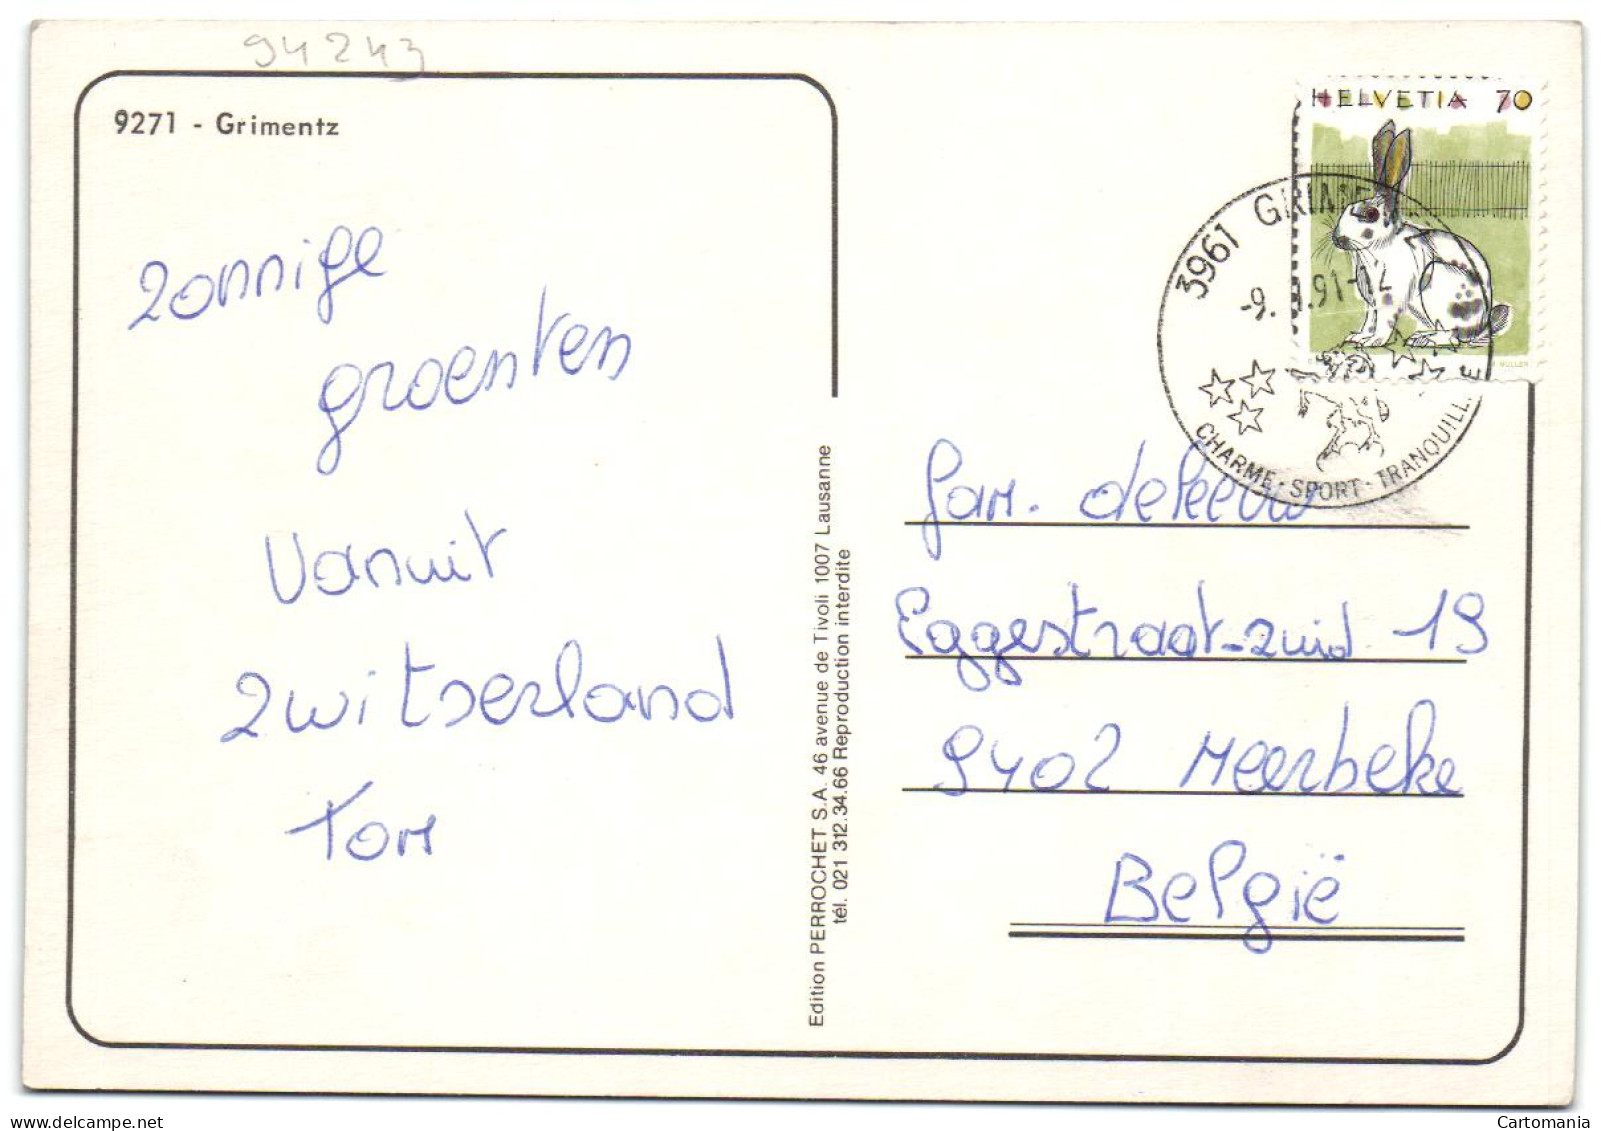 94243
9271 - Grimentz
zonnige
groenten
vanuit
zwitserland
Tom
Edition PERROCHET S.A. 46 avenue de Tivoli 1007 Lausanne
tél. 021 312.34.66 Reproduction interdite
HELVETIA 70
3961 GRIMENTZ
-9. .91-12
CHARME - SPORT - TRANQUILL E
MÜLLER
fam. deleeuw
Eggestraat-zuid 19
9402 Meerbeke
België
Cartomania